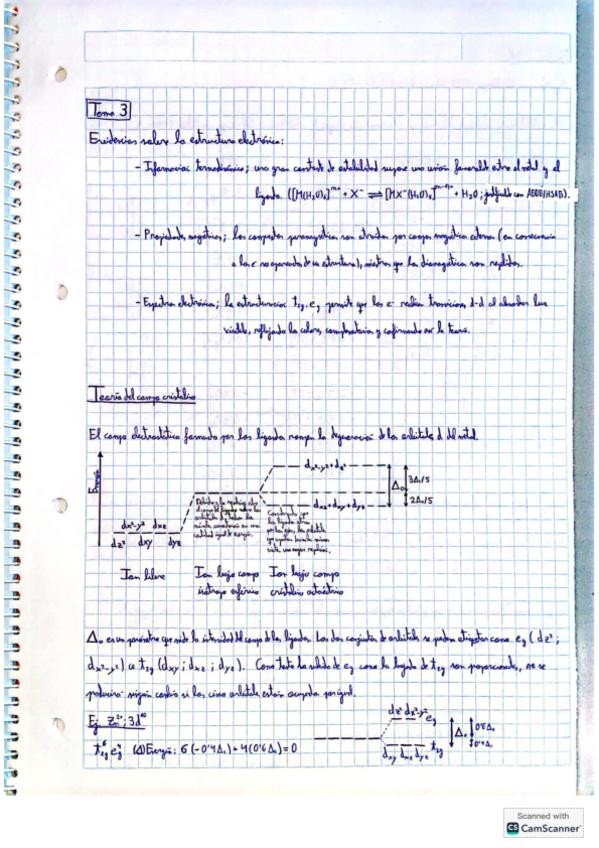 Tema 3
Evidencias sobre la estructura electrónica:
- Información termodinámica; una gran constante de estabilidad supone una unión favorable entre el metal y el
ligando. ([M(H₂O)₆]ᵐ⁺ + X⁻ ⇌ [MX⁻(H₂O)₅]⁽ᵐ⁻¹⁾⁺ + H₂O; justificado con ADBD/HSAB).
- Propiedades magnéticas; los compuestos paramagnéticos son atraídos por campos magnéticos externos (en consecuencia
a los e⁻ no apareados de su estructura), mientras que los diamagnéticos son repelidos.
- Espectros electrónicos; la estructuración t₂g, eg permite que los e⁻ realicen transiciones d-d al absorber luz
visible, reflejando los colores complementarios y confirmando así la teoría.
Teoría del campo cristalino
El campo electrostático formado por los ligandos rompe la degeneración de los orbitales d del metal.
Energía
dx²-y²+dz²
3Δ₀/5
Δ₀
2Δ₀/5
dxz+dxy+dyz
dx²-y² dxz
dz² dxy dyz
Ion libre
Ion bajo campo
esférico
Ion bajo campo
cristalino octaédrico
Δ₀ es un parámetro que mide la intensidad del campo de los ligandos. Los dos conjuntos de orbitales se pueden etiquetar como eg (dz²;
dx²-y²) o t₂g (dxy; dxz; dyz). Como tanto la subida de eg como la bajada de t₂g son proporcionales, no se
producirá ningún cambio si los cinco orbitales están ocupados por igual.
Ej. Zn²⁺; 3d¹⁰
t₂g⁶ eg⁴ (Δ)Energía: 6(-0'4Δ₀) + 4(0'6Δ₀) = 0
dz² dx²-y² eg
Δ₀
0'6Δ₀
0'4Δ₀
dxy dxz dyz t₂g
Scanned with
CS CamScanner